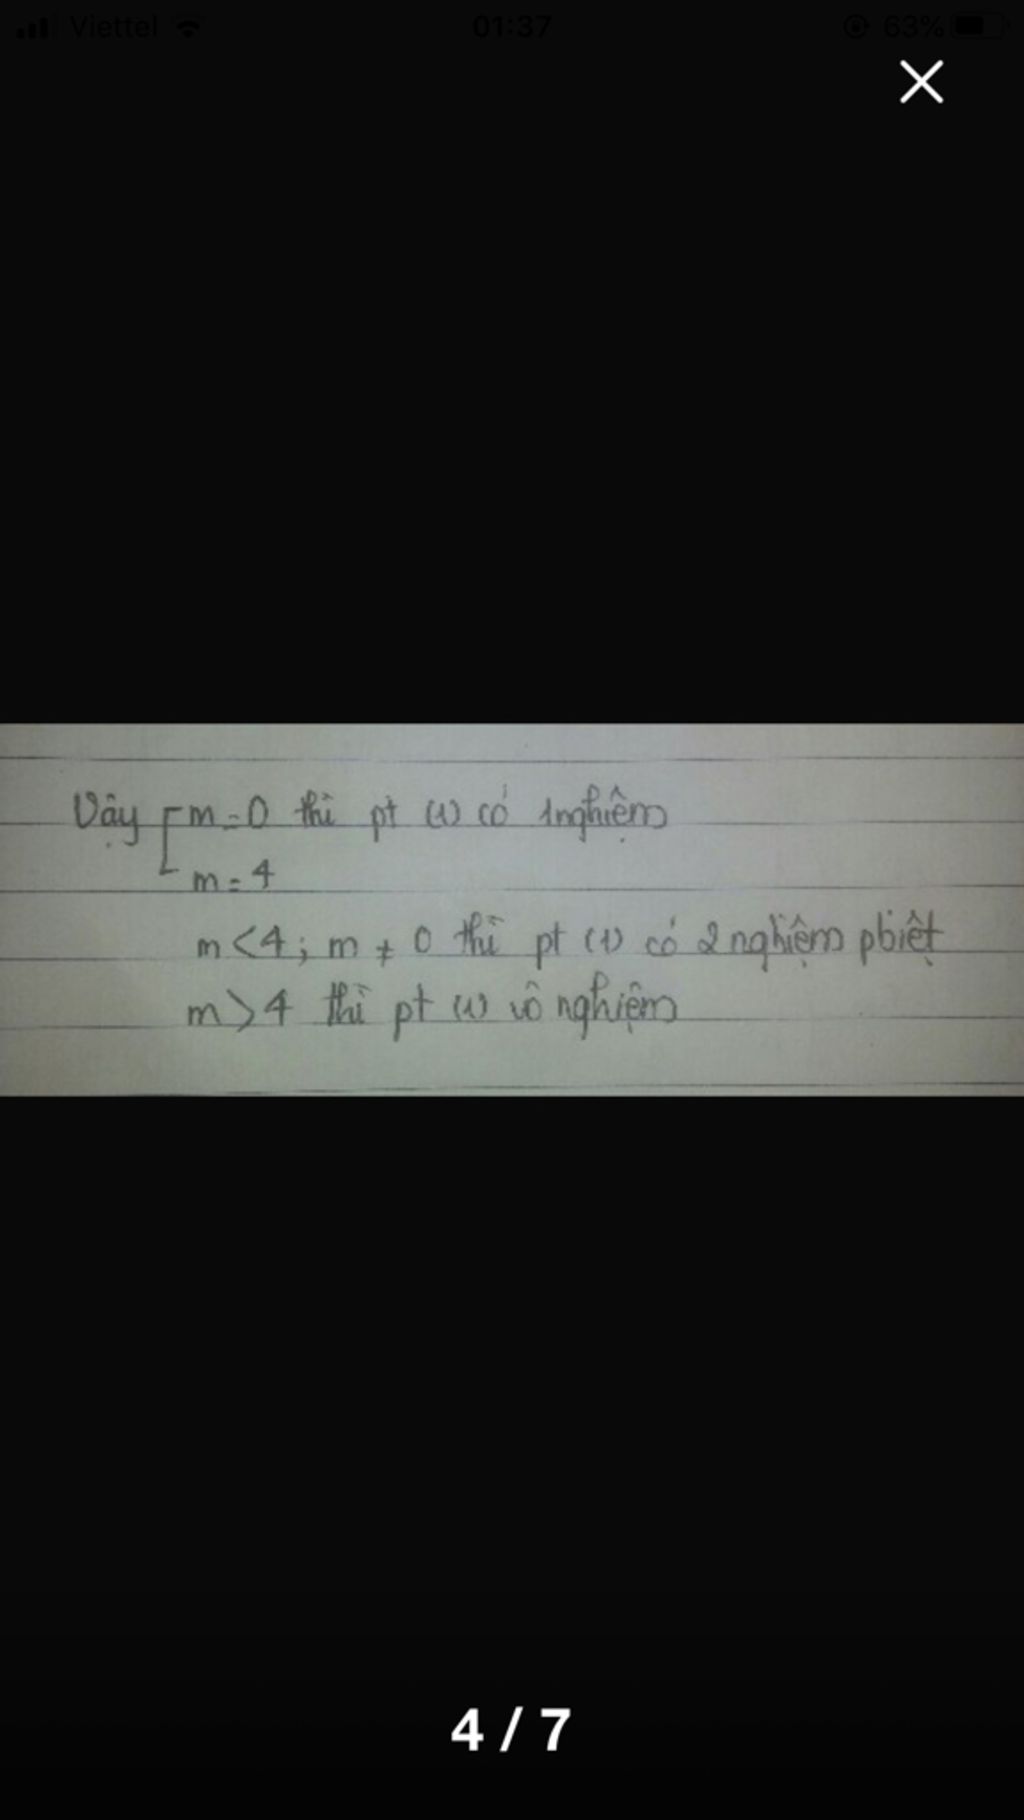 Viettel 01:37 63%
Vậy [ m = 0 thì pt (1) có 1 nghiệm
m = 4
m < 4 ; m ≠ 0 thì pt (1) có 2 nghiệm pbiệt
m > 4 thì pt (1) vô nghiệm
4 / 7